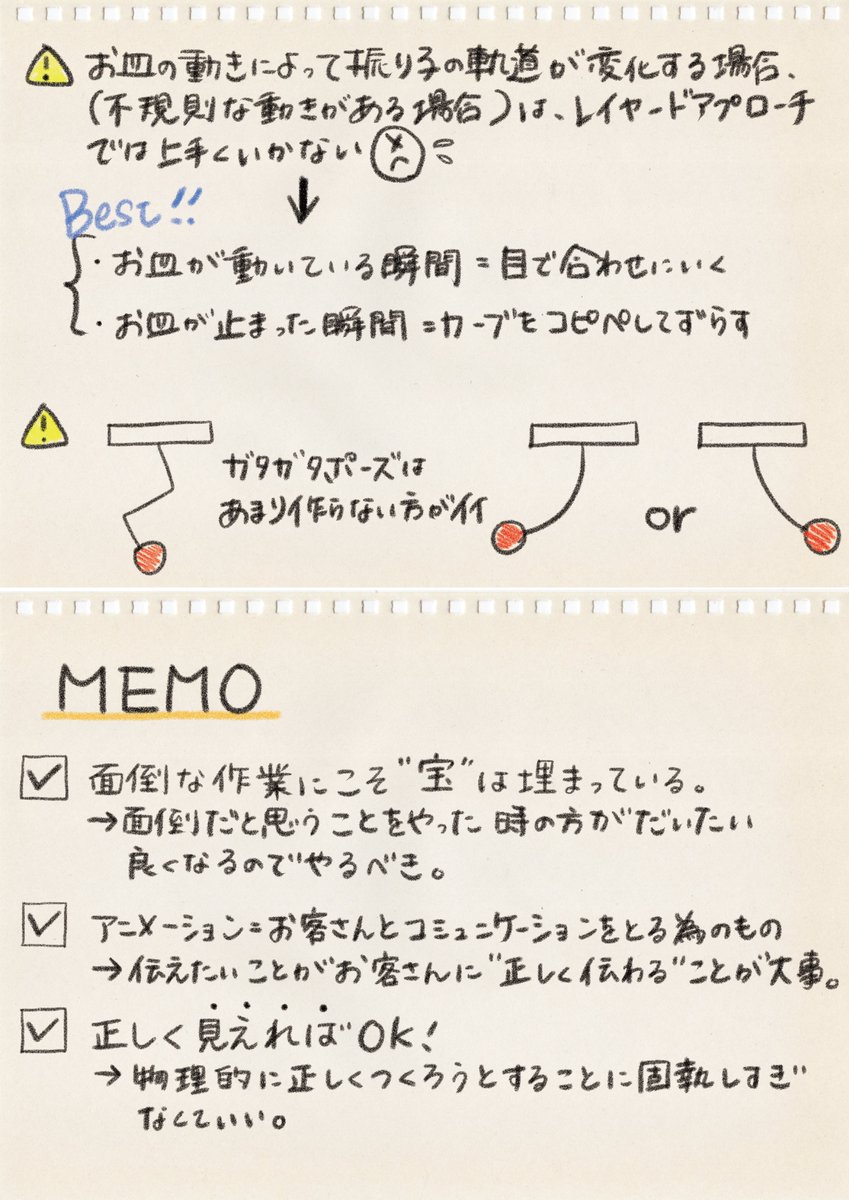 お皿の動きによって振り子の軌道が変化する場合、
(不規則な動きがある場合)は、レイヤードアプローチ
では上手くいかない
Best!!
・お皿が動いている瞬間=目で合わせにいく
・お皿が止まった瞬間=カーブをコピペしてずらす
ガタガタポーズは
あまり作らない方がイイ
or
MEMO
面倒な作業にこそ"宝"は埋まっている。
→面倒だと思うことをやった時の方がだいたい
良くなるのでやるべき。
アニメーション=お客さんとコミュニケーションをとる為のもの
→伝えたいことがお客さんに"正しく伝わる"ことが大事。
正しく見えればOK!
→物理的に正しくつくろうとすることに固執しすぎ
なくていい。